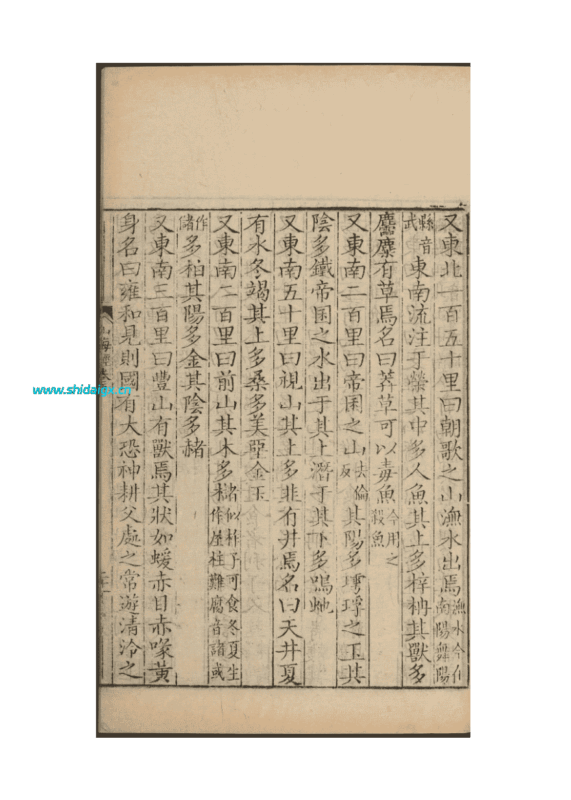 又東北一百五十里曰朝歌之山潕水出焉潕水今在南陽舞陽
縣音武東南流注于滎其中多人魚其上多梓枬其獸多
麢麋有草焉名曰莽草可以毒魚今用之殺魚
又東南二百里曰帝囷之山去倫反其陽多㻬琈之玉其
陰多鐵帝囷之水出于其上潛于其下多鳴蛇
又東南五十里曰視山其上多韭有井焉名曰天井夏
有水冬竭其上多桑多美堊金玉
又東南二百里曰前山其木多櫧似柞子可食冬夏生作屋柱難腐音諸或
作儲多柏其陽多金其陰多赭
又東南三百里曰豐山有獸焉其狀如蝯赤目赤喙黃
身名曰雍和見則國有大恐神耕父處之常遊清泠之
山海經卷
www.shidianguji.cn